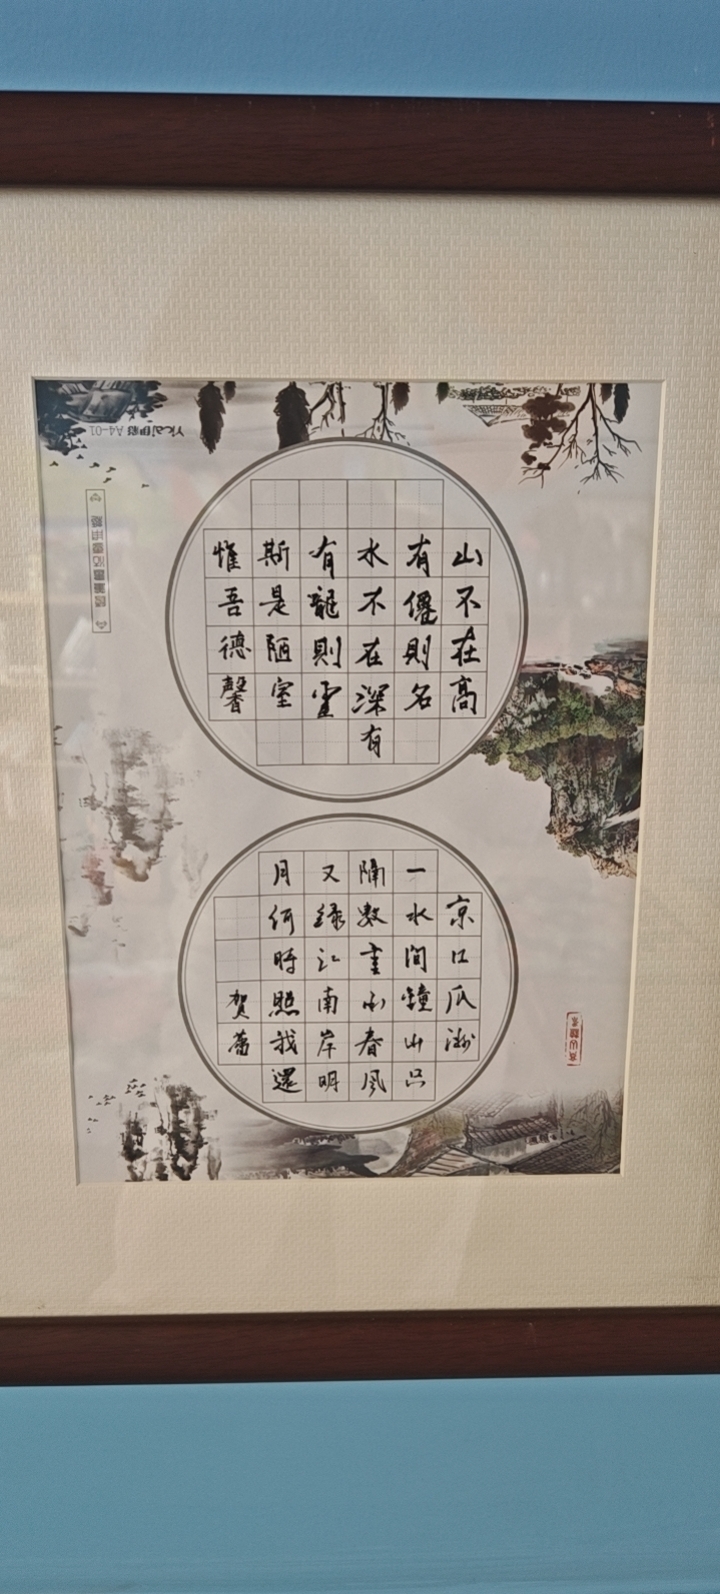 山不在高
有僊則名
水不在深有
有龍則靈
斯是陋室
惟吾德馨
京口瓜洲
一水間鐘山只
隔數重春風
又綠江南岸明
月何時照我還
賀
A4-01